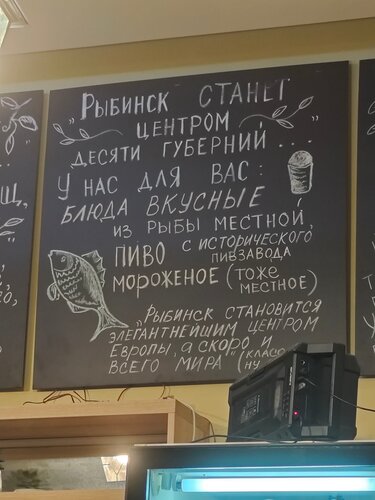 „Рыбинск станет
центром
десяти губерний...
У нас для вас:
блюда вкусные
из рыбы местной,
пиво с исторического
пивзавода
мороженое (тоже
местное)
„Рыбинск становится
элегантнейшим центром
Европы, а скоро и
всего мира" (класс
ну